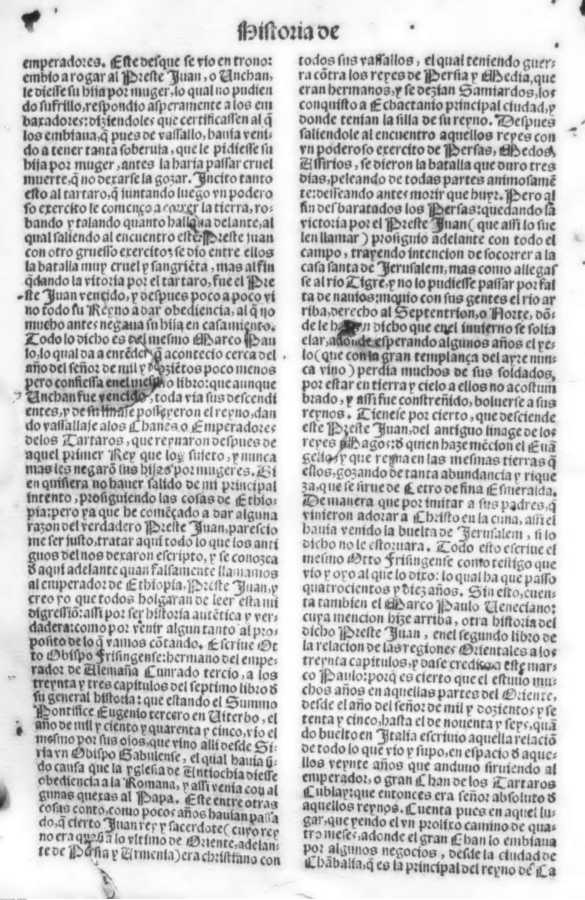 Historia de
emperadores. Este desque se vio en tronor
embio a rogar al Preste Juan, o Unchan,
le diesse su hija por muger, lo qual no pudien
do sufrillo, respondio asperamente a los em
baxadores: diziendoles que certificassen al q̃
los embiaua, q̃ pues de vassallo, hauia veni-
do a tener tanta soberuia, que le pidiesse su
hija por muger, antes la haria passar cruel
muerte, q̃ no dexarse la gozar. Incito tanto
esto al tartaro, q̃ juntando luego vn podero
so exercito le començo a correr la tierra, ro-
bando y talando quanto hallaua delante, al
qual saliendo al encuentro este Preste juan
con otro gruesso exercito, se dio entre ellos
la batalla muy cruel y sangriẽta, mas al fin
q̃dando la vitoria por el tartaro, fue el Pre-
ste Juan vencido, y despues poco a poco vi
no todo su Reyno a dar obediencia, al q̃ no
mucho antes negaua su hija en casamiento.
Todo lo dicho es del mesmo Marco Pau
lo, lo qual da a entẽder, q̃ acontecio cerca del
año del señor de mil y doziẽtos poco menos
pero confiessa en el mesmo libro: que aunque
Unchan fue vencido, toda via sus descendi
entes, y de su linaje posseyeron el reyno, dan
do vassallaje a los Chanes, o Emperadores
de los Tartaros, que reynaron despues de
aquel primer Rey que los sujeto, y nunca
mas les negarõ sus hijas por mugeres. Bi
en quisiera no hauer salido de mi principal
intento, prosiguiendo las cosas de Ethio-
pia: pero ya que he comẽçado a dar alguna
razon del verdadero Preste Juan, parescio
me ser justo, tratar aqui todo lo que los anti
guos del nos dexaron escripto, y se conozca
d̃ aqui adelante quan falsamente llamamos
al emperador de Ethiopia, Preste Juan, y
creo yo que todos holgaran de leer esta mi
digressiõ: assi por ser historia autẽtica y ver-
dadera: como por venir algun tanto al pro-
posito de lo q̃ vamos cõtando. Escriue Ot
to Obispo Frisingense: hermano del empe-
rador de Alemaña Cunrado tercio, a los
treynta y tres capitulos del septimo libro d̃
su general historia: que estando el Summo
Pontifice Eugenio tercero en Viterbo, el
año de mil y ciento y quarenta y cinco, vio el
mesmo por sus ojos, que vino alli desde Si-
ria vn Obispo Gabulense, el qual hauia si-
do causa que la yglesia de Antiochia diesse
obediencia a la Romana, y assi venia con al
gunas quexas al Papa. Este entre otras
cosas conto, como pocos años hauian passa
do, q̃ cierto Juan rey y sacerdote (cuyo rey
no era a lo vltimo de Oriente, adelan-
te de Persia y Armenia) era christiano con
todos sus vassallos, el qual teniendo guer-
ra cõtra los reyes de Persia y Media, que
eran hermanos, y se dezian Samiardos, los
conquisto a Echactanio principal ciudad, y
donde tenian la silla de su reyno. Despues
saliendole al encuentro aquellos reyes con
vn poderoso exercito de Persas, Medos,
Assirios, se dieron la batalla que duro tres
dias, peleando de todas partes animosamẽ
te: desseando antes morir que huyr. Pero al
fin desbaratados los Persas: quedando la
victoria por el Preste Juan (que assi lo sue
len llamar) prosiguio adelante con todo el
campo, trayendo intencion de socorrer a la
casa santa de Jerusalem, mas como allegas
se al rio Tigre, y no lo pudiesse passar por fal
ta de nauios: mouio con sus gentes el rio ar
riba, derecho al Septentrion, o Norte, dõ
de le hauian dicho que en el inuierno se solia
elar, adonde esperando algunos años el ye-
lo (que con la gran templança del ayre nun-
ca vino) perdia muchos de sus soldados,
por estar en tierra y cielo a ellos no acostum
brado, y assi fue constreñido, boluerse a sus
reynos. Tienese por cierto, que desciende
este Preste Juan, del antiguo linage de los
reyes Magos: d̃ quien haze mẽcion el Euã
gelio, y que reyna en las mesmas tierras q̃
ellos, gozando de tanta abundancia y rique
za, que se sirue de Cetro de fina Esmeralda.
De manera que por imitar a sus padres, q̃
vinieron adorar a Christo en la cuna, assi el
hauia venido la buelta de Jerusalem, si lo
dicho no le estoruara. Todo esto escriue el
mesmo Otto Frisingense como testigo que
vio y oyo al que lo dixo: lo qual ha que passo
quatrocientos y diez años. Sin esto, cuen-
ta tambien el Marco Paulo Ueneciano:
cuya mencion hize arriba, otra historia del
dicho Preste Juan, en el segundo libro de
la relacion de las regiones Orientales a los
treynta capitulos, y dase credito a este mar-
co Paulo: porq̃ es cierto que el estuuo mu-
chos años en aquellas partes del Oriente,
desde el año del señor de mil y dozientos y se
tenta y cinco, hasta el de nouenta y seys, quã
do buelto en Italia escriuio aquella relaciõ
de todo lo que vio y supo, en espacio d̃ aque-
llos veynte años que anduuo siruiendo al
emperador, o gran Chan de los Tartaros
Cublay: que entonces era señor absoluto d̃
aquellos reynos. Cuenta pues en aquel lu-
gar, que yendo el vn prolixo camino de qua-
tro meses, adonde el gran Chan lo embiaua
por algunos negocios, desde la ciudad de
Chãbalia, q̃ es la principal del reyno de Ca